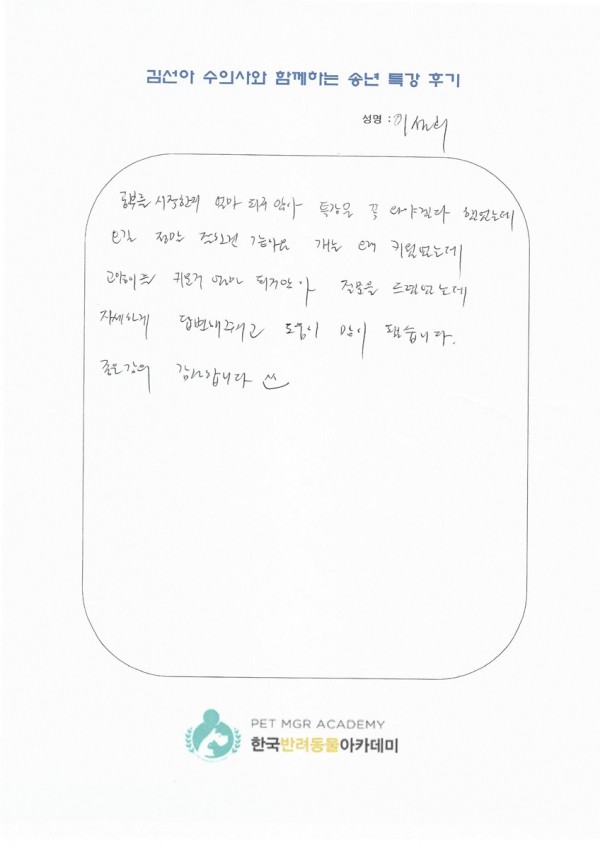 김선아 수의사와 함께하는 송년 특강 후기
성명 :
공부를 시작한지 얼마 되지 않아 특강을 꼭 와야겠다 했었는데
오길 정말 잘한건 같아요 개는 오래 키웠었는데
고양이를 키운지 얼마 되지 않아 질문을 드렸었는데
자세하게 답변해주시고 도움이 많이 됐습니다.
좋은강의 감사합니다
PET MGR ACADEMY
한국반려동물아카데미